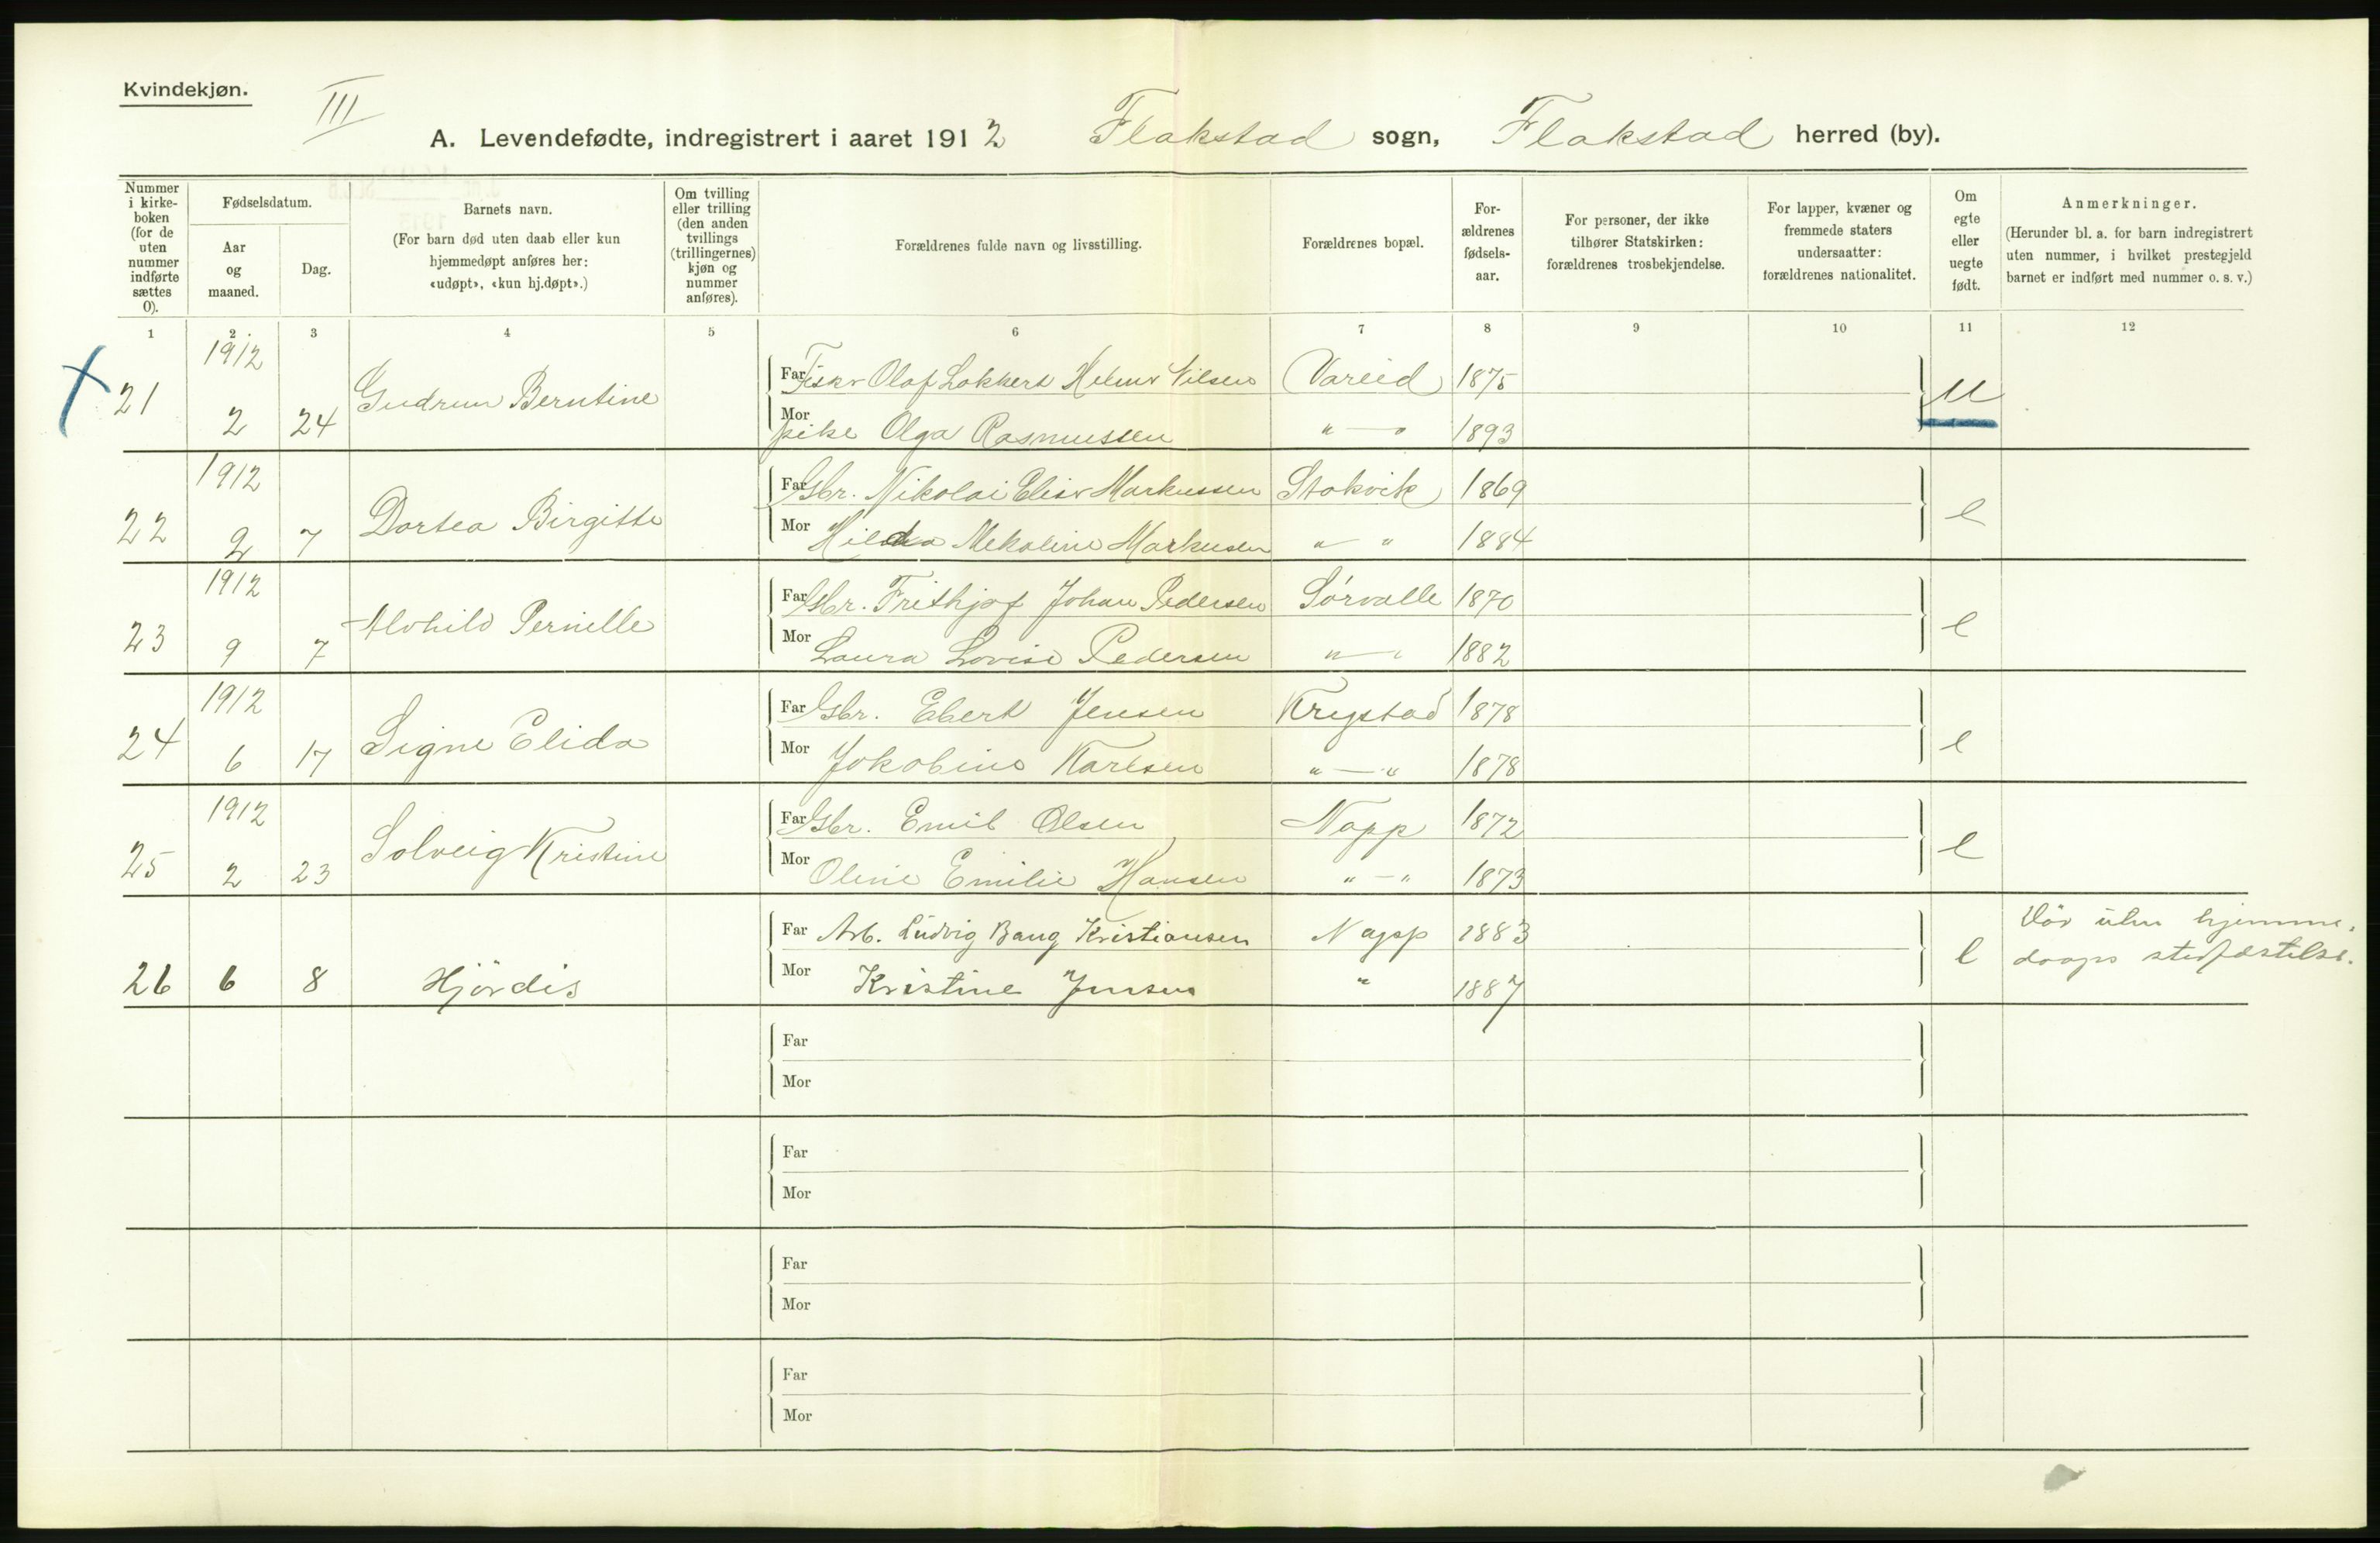 Kvindekjøn.
III
A. Levendefødte, indregistrert i aaret 1912 Flakstad sogn, Flakstad herred (by).
Nummer i kirke- boken (for de uten nummer indførte sættes 0).
Fødselsdatum.
Aar og maaned.
Dag.
Barnets navn.
(For barn død uten daab eller kun hjemmedøpt anføres her: «udøpt», «kun hj.døpt».)
Om tvilling eller trilling (den anden tvillings (trillingernes) kjøn og nummer anføres).
Forældrenes fulde navn og livsstilling.
Forældrenes bopæl.
For- ældrenes fødsels- aar.
For personer, der ikke tilhører Statskirken: forældrenes trosbekjendelse.
For lapper, kvæner og fremmede staters undersaatter: forældrenes nationalitet.
Om egte eller uegte født.
Anmerkninger.
(Herunder bl. a. for barn indregistrert uten nummer, i hvilket prestegjeld barnet er indført med nummer o. s. v.)
1 2 3 4 5 6 7 8 9 10 11 12
1912
Far Fisker Olaf Lokkert Helmer Nilsen Vareid 1875
21 2 24 Gudrun Berntine u
Mor pike Olga Rasmussen " — " 1893
1912
Far Gbr. Nikolai Eliser Markussen Stokvik 1869
22 2 7 Dortea Birgitte e
Mor Hilda Mekaline Markusen " " 1884
1912
Far Gbr. Frithjof Johan Pedersen Sørvalle 1870
23 9 7 Alvhild Pernille e
Mor Laura Lovise Pedersen " — " 1882
1912
Far Gbr. Ebert Jensen Krystad 1878
24 6 17 Signe Elida e
Mor Jokobine Karlsen " — " 1878
1912
Far Gbr. Emil Olsen Napp 1872
25 2 23 Solveig Kristine e
Mor Oline Emilie Hansen " — " 1873
Far Arb. Ludvig Bang Kristiansen Napp 1883
26 6 8 Hjördis e
Mor Kristine Jensen " 1887
Död uten hjemme,
daaps stadfæstelse.
Far
Mor
Far
Mor
Far
Mor
Far
Mor